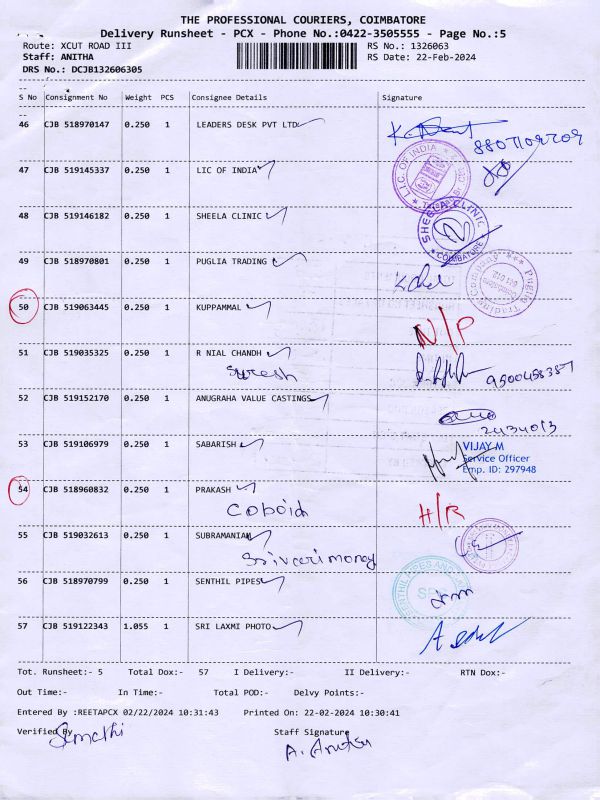 THE PROFESSIONAL COURIERS, COIMBATORE
Delivery Runsheet - PCX - Phone No.:0422-3505555 - Page No.:5
Route: XCUT ROAD III
RS No.: 1326063
Staff: ANITHA
RS Date: 22-Feb-2024
DRS No.: DCJB132606305
S No Consignment No Weight PCS Consignee Details Signature
46 CJB 518970147 0.250 1 LEADERS DESK PVT LTD
47 CJB 519145337 0.250 1 LIC OF INDIA
L.I.C. OF INDIA
48 CJB 519146182 0.250 1 SHEELA CLINIC
SHEELA CLINIC
COIMBATORE
49 CJB 518970801 0.250 1 PUGLIA TRADING C
Puglia Trading Company
50 CJB 519063445 0.250 1 KUPPAMMAL N/P
51 CJB 519035325 0.250 1 R NIAL CHANDH
Suresh
52 CJB 519152170 0.250 1 ANUGRAHA VALUE CASTINGS
2434013
53 CJB 519106979 0.250 1 SABARISH
VIJAY M
Service Officer
Emp. ID: 297948
54 CJB 518960832 0.250 1 PRAKASH H/R
Coboid
55 CJB 519032613 0.250 1 SUBRAMANIAM
Srivari money
56 CJB 518970799 0.250 1 SENTHIL PIPES
SENTHIL PIPES
57 CJB 519122343 1.055 1 SRI LAXMI PHOTO
Tot. Runsheet:- 5 Total Dox:- 57 I Delivery:- II Delivery:- RTN Dox:-
Out Time:- In Time:- Total POD:- Delvy Points:-
Entered By :REETAPCX 02/22/2024 10:31:43 Printed On: 22-02-2024 10:30:41
Verified By
Staff Signature
Sumathi
A. Anitha